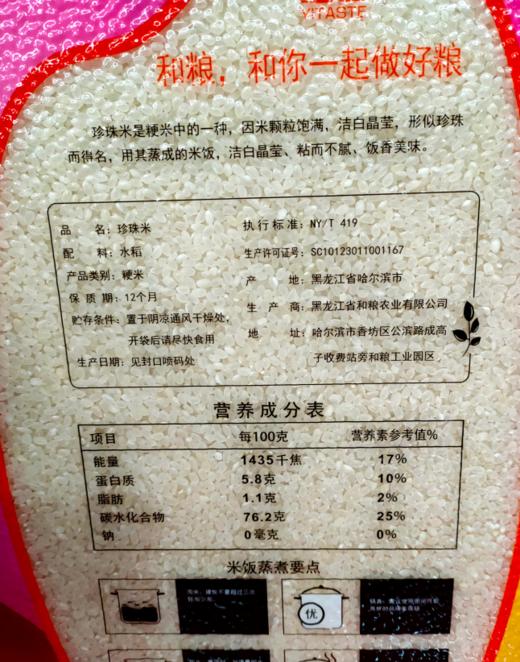 YITASTE
和粮，和你一起做好粮
珍珠米是粳米中的一种，因米颗粒饱满，洁白晶莹，形似珍珠
而得名，用其蒸成的米饭，洁白晶莹、粘而不腻、饭香美味。
品 名：珍珠米
配 料：水稻
产品类别：粳米
保 质 期：12个月
贮存条件：置于阴凉通风干燥处，
开袋后请尽快食用
生产日期：见封口喷码处
执行标准：NY/T 419
生产许可证号：SC10123011001167
产 地：黑龙江省哈尔滨市
生 产 商：黑龙江省和粮农业有限公司
地 址：哈尔滨市香坊区公滨路成高
子收费站旁和粮工业园区
营养成分表
项目 每100克 营养素参考值%
能量 1435千焦 17%
蛋白质 5.8克 10%
脂肪 1.1克 2%
碳水化合物 76.2克 25%
钠 0毫克 0%
米饭蒸煮要点
优